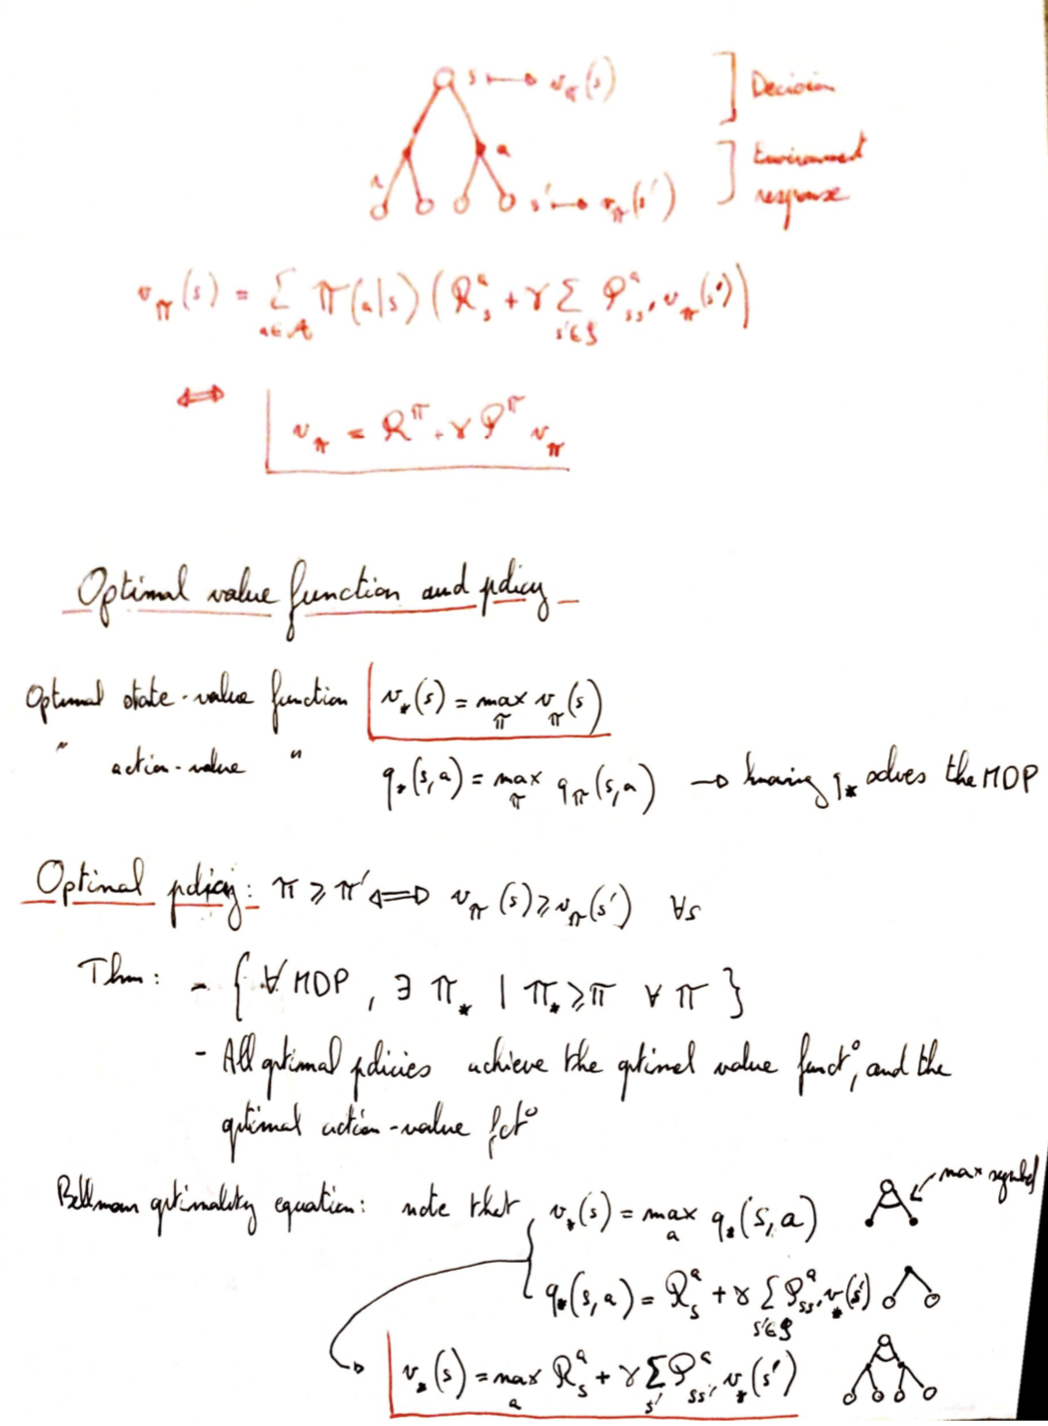 s ↦ v_π(s) ] Decision
a ] Environment
r s' ↦ v_π(s') response
v_π(s) = Σ_{a∈A} π(a|s) (R_s^a + γ Σ_{s'∈S} P_{ss'}^a v_π(s'))
⇔ v_π = R^π + γ P^π v_π
Optimal value function and policy
Optimal state-value function v_*(s) = max_π v_π(s)
" action-value " q_*(s,a) = max_π q_π(s,a) → knowing q_* solves the MDP
Optimal policy: π ≥ π' ⇔ v_π(s) ≥ v_π(s') ∀s
Thm: - { ∀ MDP, ∃ π_* | π_* ≥ π ∀ π }
- All optimal policies achieve the optimal value funct°, and the
optimal action-value fct°
Bellman optimality equation: note that { v_*(s) = max_a q_*(s,a) max symbol
q_*(s,a) = R_s^a + γ Σ_{s'∈S} P_{ss'}^a v_*(s')
→ v_*(s) = max_a R_s^a + γ Σ_{s'} P_{ss'}^a v_*(s')